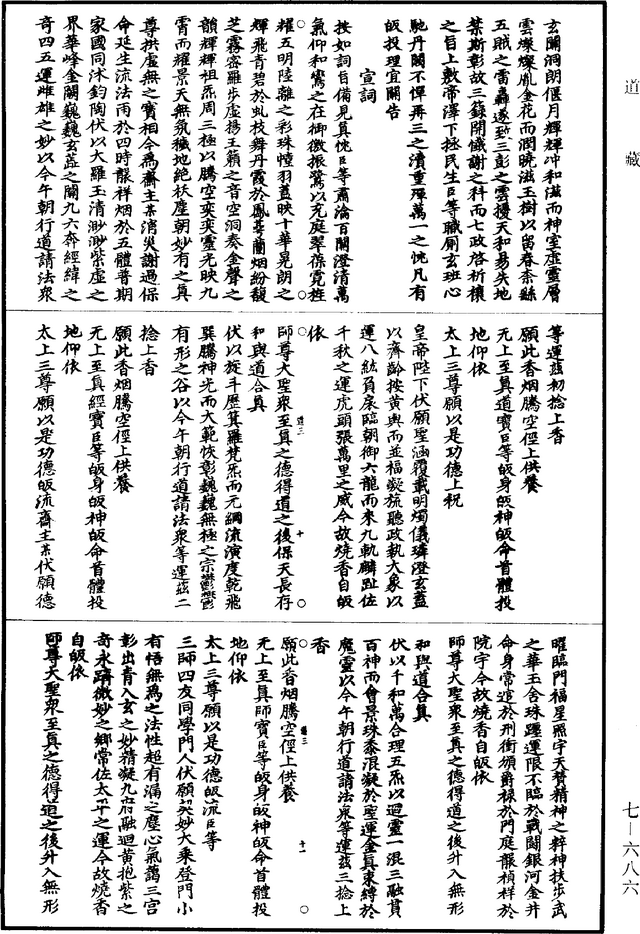 道藏
玄關洞朗偃月輝輝冲和滋而神室虛靈層
雲燦燦胤金花而潤曉滋玉樹以留春柰緣
五賊之雷轟遂致三彭之雲擾天和易失地
禁斯彰故三籙開懴謝之科而七政啓祈禳
之旨上敷帝澤下拯民生臣等職厠玄班心
馳丹闕不憚再三之瀆重殫萬一之忱凡有
皈投理宜關告
宣詞
按如詞旨備見真忱臣等肅淪百關澄清萬
氣仰和鸞之在御微振鷺以充庭翠葆霓旌
耀五明陸離之彩珠幢羽蓋映十華晃朗之
輝飛青碧於虬枝舞丹霞於鳳蕚蘭烟紛馥
芝霧密羅步虛揚玉籟之音空洞奏金聲之
韻輝輝祖炁周三極以騰空奕奕靈光映九
霄而耀景天無氛穢地絕袄塵朝妙有之真
尊拱虛無之寶相今爲齋主某消災謝過保
命延生流法雨於四時靄祥烟於五體普期
家國同沐鈞陶伏以大羅玉清渺渺紫虛之
界華峰金闕巍巍玄蓋之關九六奔經緯之
奇四五運雌雄之妙以今午朝行道請法衆
等運兹初捻上香
願此香烟騰空徑上供養
无上至真道寶臣等皈身皈神皈命首體投
地仰依
太上三尊願以是功德上祝
皇帝陛下伏願聖涵覆載明燭儀璘澄玄蓋
以齊齡按黃輿而並福凝旒聽政執大象以
運八紘負扆臨朝御六龍而來九軌麟趾佐
千秋之運虎頭張萬里之威今故燒香自皈
依
師尊大聖衆至真之德得道之後保天長存
和與道合真
伏以旋斗歷箕羅梵炁而元綱流演度乾飛
巽騰神光而大範恢彰巍巍無極之宗鬱鬱
有形之谷以今午朝行道請法衆等運兹二
捻上香
願此香烟騰空徑上供養
无上至真經寶臣等皈身皈神皈命首體投
地仰依
太上三尊願以是功德皈流齋主某伏願德
曜臨門福星照宇天贊精神之粹神扶步武
之華玉舍珠躔運限不臨於戰鬪銀河金井
命身常逭於刑衝頒爵祿於門庭靄禎祥於
院宇今故燒香自皈依
師尊大聖衆至真之德得道之後升入無形
和與道合真
伏以千和萬合理五炁以迴靈一混三融貫
百神而會景珠黍混凝於聖運金真束縛於
魔靈以今午朝行道請法衆等運茲三捻上
香
願此香烟騰空徑上供養
无上至真師寶臣等皈身皈神皈命首體投
地仰依
太上三尊願以是功德皈流臣等
三師四友同學門人伏願契妙大乘登門小
有悟無爲之法性超有漏之塵心氣藹三宮
彰出青入玄之妙精凝九府融迴黃抱紫之
奇永躋微妙之鄉常佐太平之運今故燒香
自皈依
師尊大聖衆至真之德得道之後升入無形
道三
十
道三
十一
七—六八六